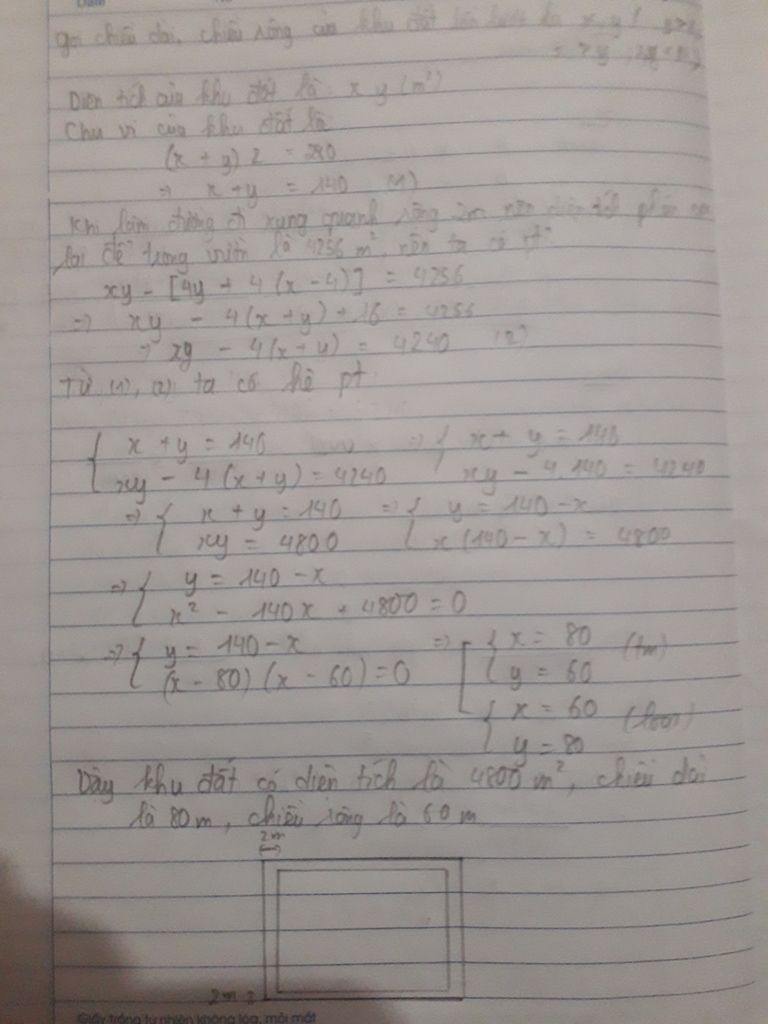 gọi chiều dài, chiều rộng của khu đất lần lượt là x, y
Diện tích của khu đất là x y (m²)
Chu vi của khu đất là
(x + y) 2 = 280
=> x + y = 140 (1)
Khi làm đường đi xung quanh rộng 2m nên diện tích phần còn
lại để trong vườn là 4256 m², nên ta có pt
xy - [4y + 4(x - 4)] = 4256
=> xy - 4(x + y) + 16 = 4256
=> xy - 4(x + y) = 4240 (2)
Từ (1), (2) ta có hệ pt
{ x + y = 140 => { x + y = 140
xy - 4(x + y) = 4240 xy - 4.140 = 4240
=> { x + y = 140 => { y = 140 - x
xy = 4800 x(140 - x) = 4800
=> { y = 140 - x
x² - 140x + 4800 = 0
=> { y = 140 - x => [ { x = 80 (tm)
(x - 80)(x - 60) = 0 y = 60
{ x = 60 (loại)
y = 80
Vậy khu đất có diện tích là 4800 m², chiều dài
là 80m, chiều rộng là 60m
2m
2m
Giấy trắng tự nhiên không lóa, mỏi mắt